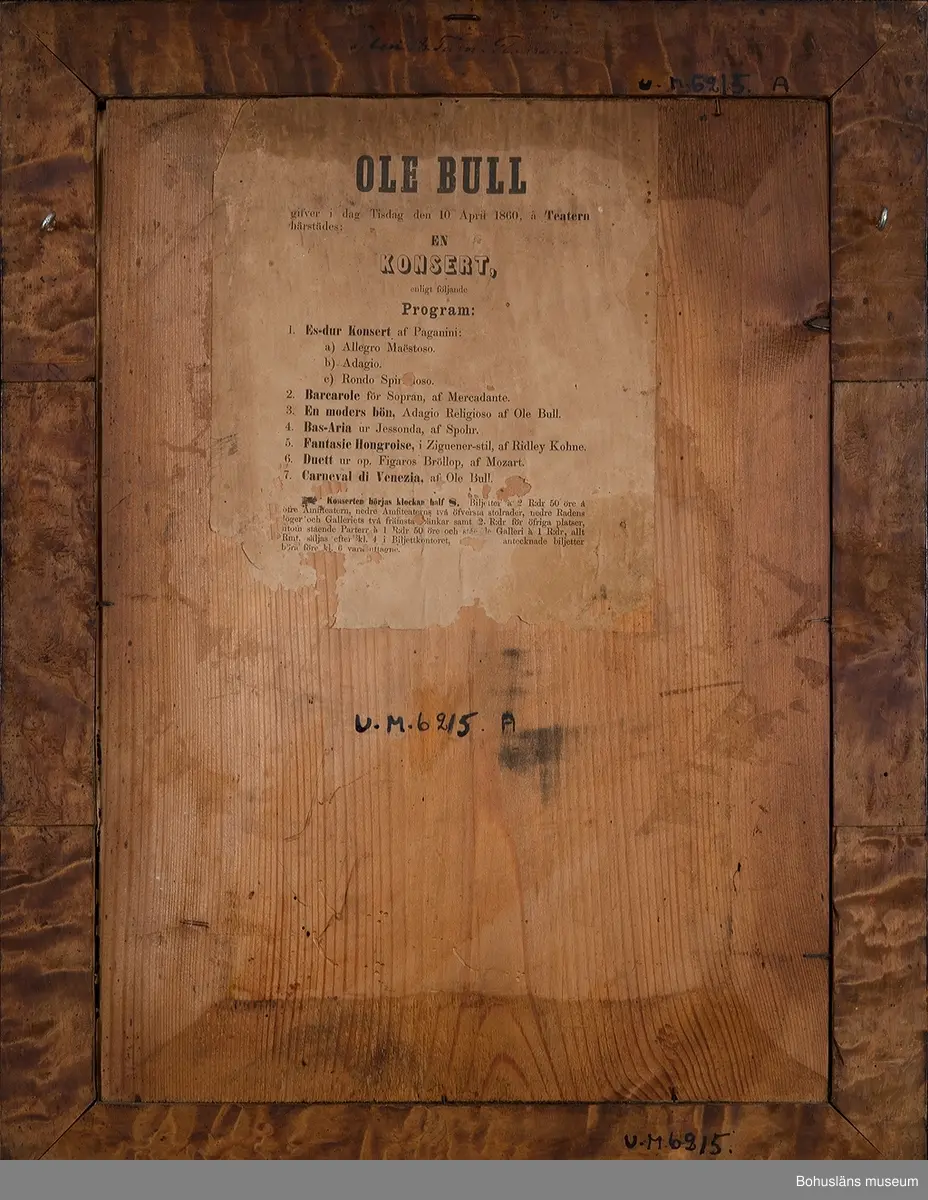 U.M.6215. A
OLE BULL
gifver i dag Tisdag den 10 April 1860, å Teatern
härstädes:
EN
KONSERT,
enligt följande
Program:
1. Es-dur Konsert af Paganini:
a) Allegro Maëstoso.
b) Adagio.
c) Rondo
2. Barcarole för Sopran, af Mercadante.
3. En moders bön, Adagio Religioso af Ole Bull.
4. Bas-Aria ur Jessonda, af Spohr.
5. Fantasie Hongroise, i Ziguener-stil, af Ridley Kohne.
6. Duett ur op. Figaros Bröllop, af Mozart.
7. Carneval di Venezia, af Ole Bull.
Konserten börjas klockan half 8. Biljetter à 2 R:dr 50 öre å
öfre Amfiteatern, nedre Amfiteaterns två öfversta stolrader, nedre Radens
loger och Galleriets två främsta bänkar samt 2 R:dr för öfriga platser,
utom stående Parterr à 1 R:dr 50 öre och Galleri à 1 R:dr, allt
Rmt, säljas efter kl. 4 i Biljettkontoret, antecknade biljetter
böra före kl. 6 vara uttagne.
U.M.6215. A
U.M.6215.
Bohusläns museum